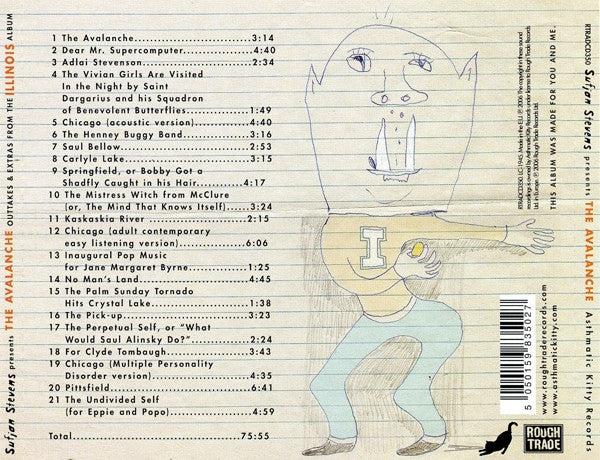 Sufjan Stevens presents THE AVALANCHE OUTTAKES & EXTRAS FROM THE ILLINOIS ALBUM
1 The Avalanche...3:14
2 Dear Mr. Supercomputer...4:40
3 Adlai Stevenson...2:34
4 The Vivian Girls Are Visited
In the Night by Saint
Dargarius and his Squadron
of Benevolent Butterflies...1:49
5 Chicago (acoustic version)...4:40
6 The Henney Buggy Band...3:16
7 Saul Bellow...2:53
8 Carlyle Lake...3:15
9 Springfield, or Bobby Got a
Shadfly Caught in his Hair...4:17
10 The Mistress Witch from McClure
(or, The Mind That Knows Itself)...3:24
11 Kaskaskia River...2:15
12 Chicago (adult contemporary
easy listening version)...6:06
13 Inaugural Pop Music
for Jane Margaret Byrne...1:25
14 No Man's Land...4:45
15 The Palm Sunday Tornado
Hits Crystal Lake...1:38
16 The Pick-up...3:23
17 The Perpetual Self, or "What
Would Saul Alinsky Do?"...2:24
18 For Clyde Tombaugh...3:43
19 Chicago (Multiple Personality
Disorder version)...4:35
20 Pittsfield...6:41
21 The Undivided Self
(for Eppie and Popo)...4:59
Total...75:55
I
RTRADCD350. LC-11945. Made in the E.U. ℗ 2006 The copyright in these sound
recordings is owned by Asthmatic Kitty Records under license to Rough Trade Records
Ltd in Europe. ℗ 2006 Rough Trade Records Ltd.
THIS ALBUM WAS MADE FOR YOU AND ME.
5 050159 835027
www.roughtraderecords.com
www.asthmatickitty.com
ROUGH
TRADE
RTRADCD350 Sufjan Stevens presents THE AVALANCHE Asthmatic Kitty Records